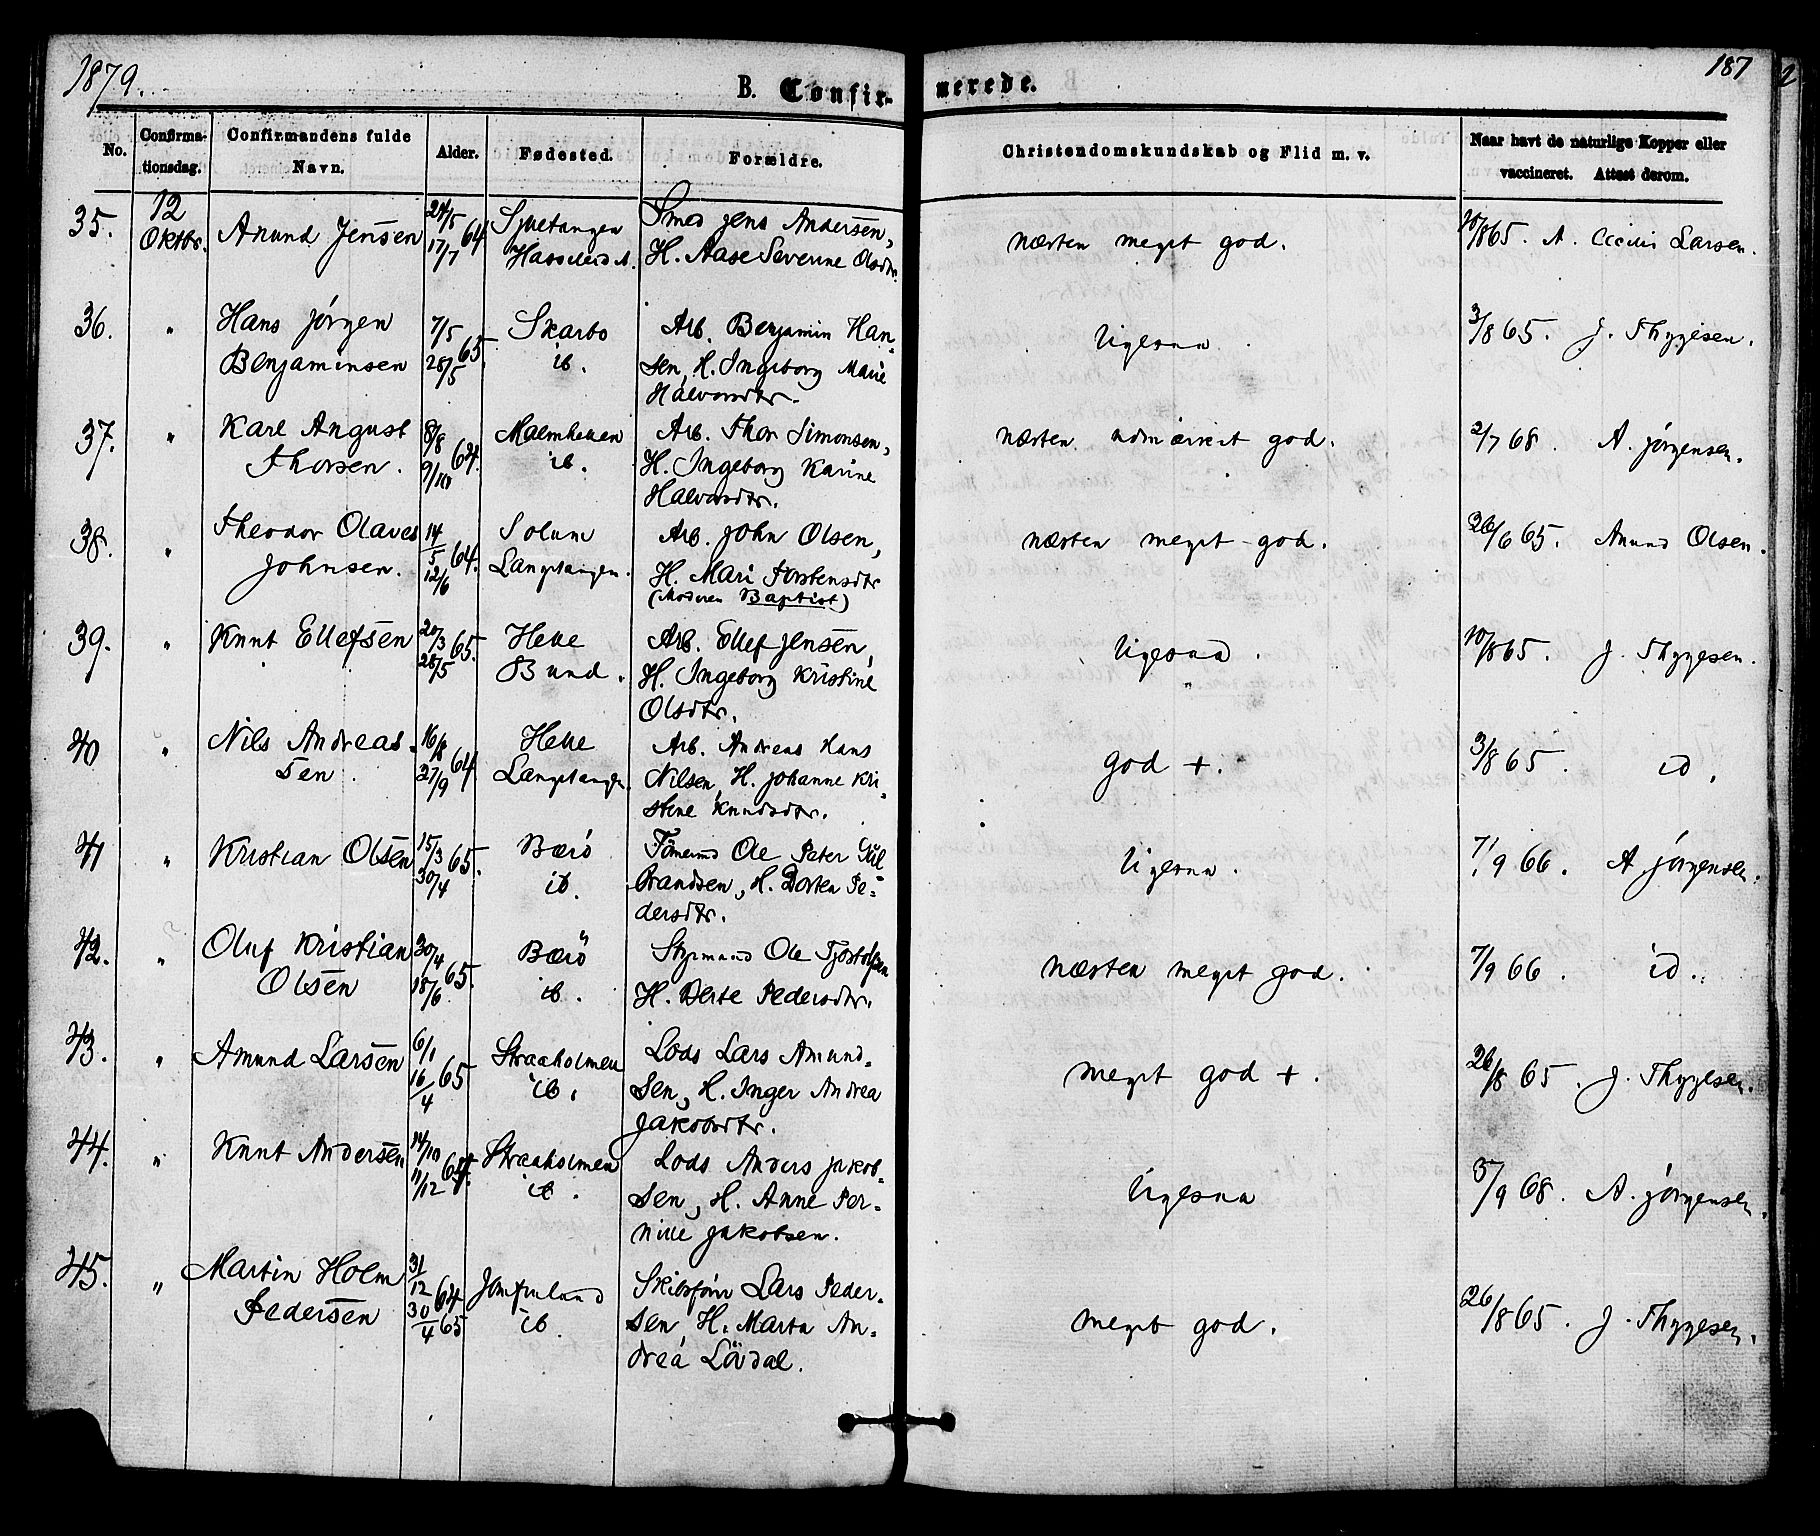 1879.
187
2
B. Confir-
merede.
No.
Confirma-
tionsdag.
Confirmandens fulde
Navn.
Alder.
Fødested.
Forældre.
Christendomskundskab og Flid m. v.
Naar havt de naturlige Kopper eller
vaccineret. Attest derom.
35. 12 Oktbr. Anund Jensen 24/5 17/7 64
Hasseldal.
Smed Jens Andersen,
H. Aase Severine Olsdtr.
næsten meget god. 10/8 65. A. Cecilie Larsen.
36. " Hans Jörgen
Benjaminsen
7/5 28/5 65.
Skarbo
ib.
Arb. Benjamin Han-
sen, H. Ingeborg Marie
Halvorsdtr.
ligesaa. 3/8 65. J. Thygesen.
37. " Karl August
Thorsen.
8/8 9/10 64.
ib.
Arb. Thor Simonsen,
H. Ingeborg Karine
Halvorsdtr.
næsten udmærket god. 2/7 68. A. Jörgensen.
38. " Theodor Olaves
Johnsen.
14/5 12/6 64.
Solum
Langetangen.
Arb. John Olsen,
H. Mari Torstensdtr
(Moderen Baptist)
næsten meget god. 26/6 65. Anund Olsen.
39. " Knut Ellefsen 20/3 28/5 65.
Helle
Bund.
Arb. Ellef Jensen,
H. Ingeborg Kristine
Olsdtr.
ligesaa. 10/8 65. J. Thygesen.
40 " Nils Andreas-
sen.
16/8 27/9 64
Helle
Langetangen
Arb. Andreas Hans
Nilsen, H. Johanne Kri-
stine Knudsdtr.
god +. 3/8 65. id.
41 " Kristian Olsen 15/3 30/4 65.
Bærö
ib.
Tömmermd Ole Peter Gul-
brandsen, H. Dorten Pe-
dersdtr.
ligesaa. 7/9 66. A Jörgensen.
42. " Oluf Kristian
Olsen
30/4 18/6 65.
Bærö
ib.
Styrmand Ole Tjöstolfsen
H. Berte Pedersdtr.
næsten meget god. 7/9 66. id.
43. " Amund Larsen 6/1 16/4 65
Straaholmen
ib.
Lods Lars Amund-
sen, H. Inger Andrea
Jakobsdtr.
meget god +. 26/8 65. J. Thygesen.
44. " Knut Andersen 14/10 11/12 64.
Straaholmen
ib.
Lods Anders Jakob-
sen, H. Anne Per-
nille Jakobsen.
ligesaa 3/9 68. A. Jörgensen.
45. " Martin Holm
Pedersen
31/12 64 30/4 65
Jomfruland
ib.
Skibsförer Lars Peder-
sen, H. Marta An-
drea Lövdal.
meget god. 26/8 65. J. Thygesen.